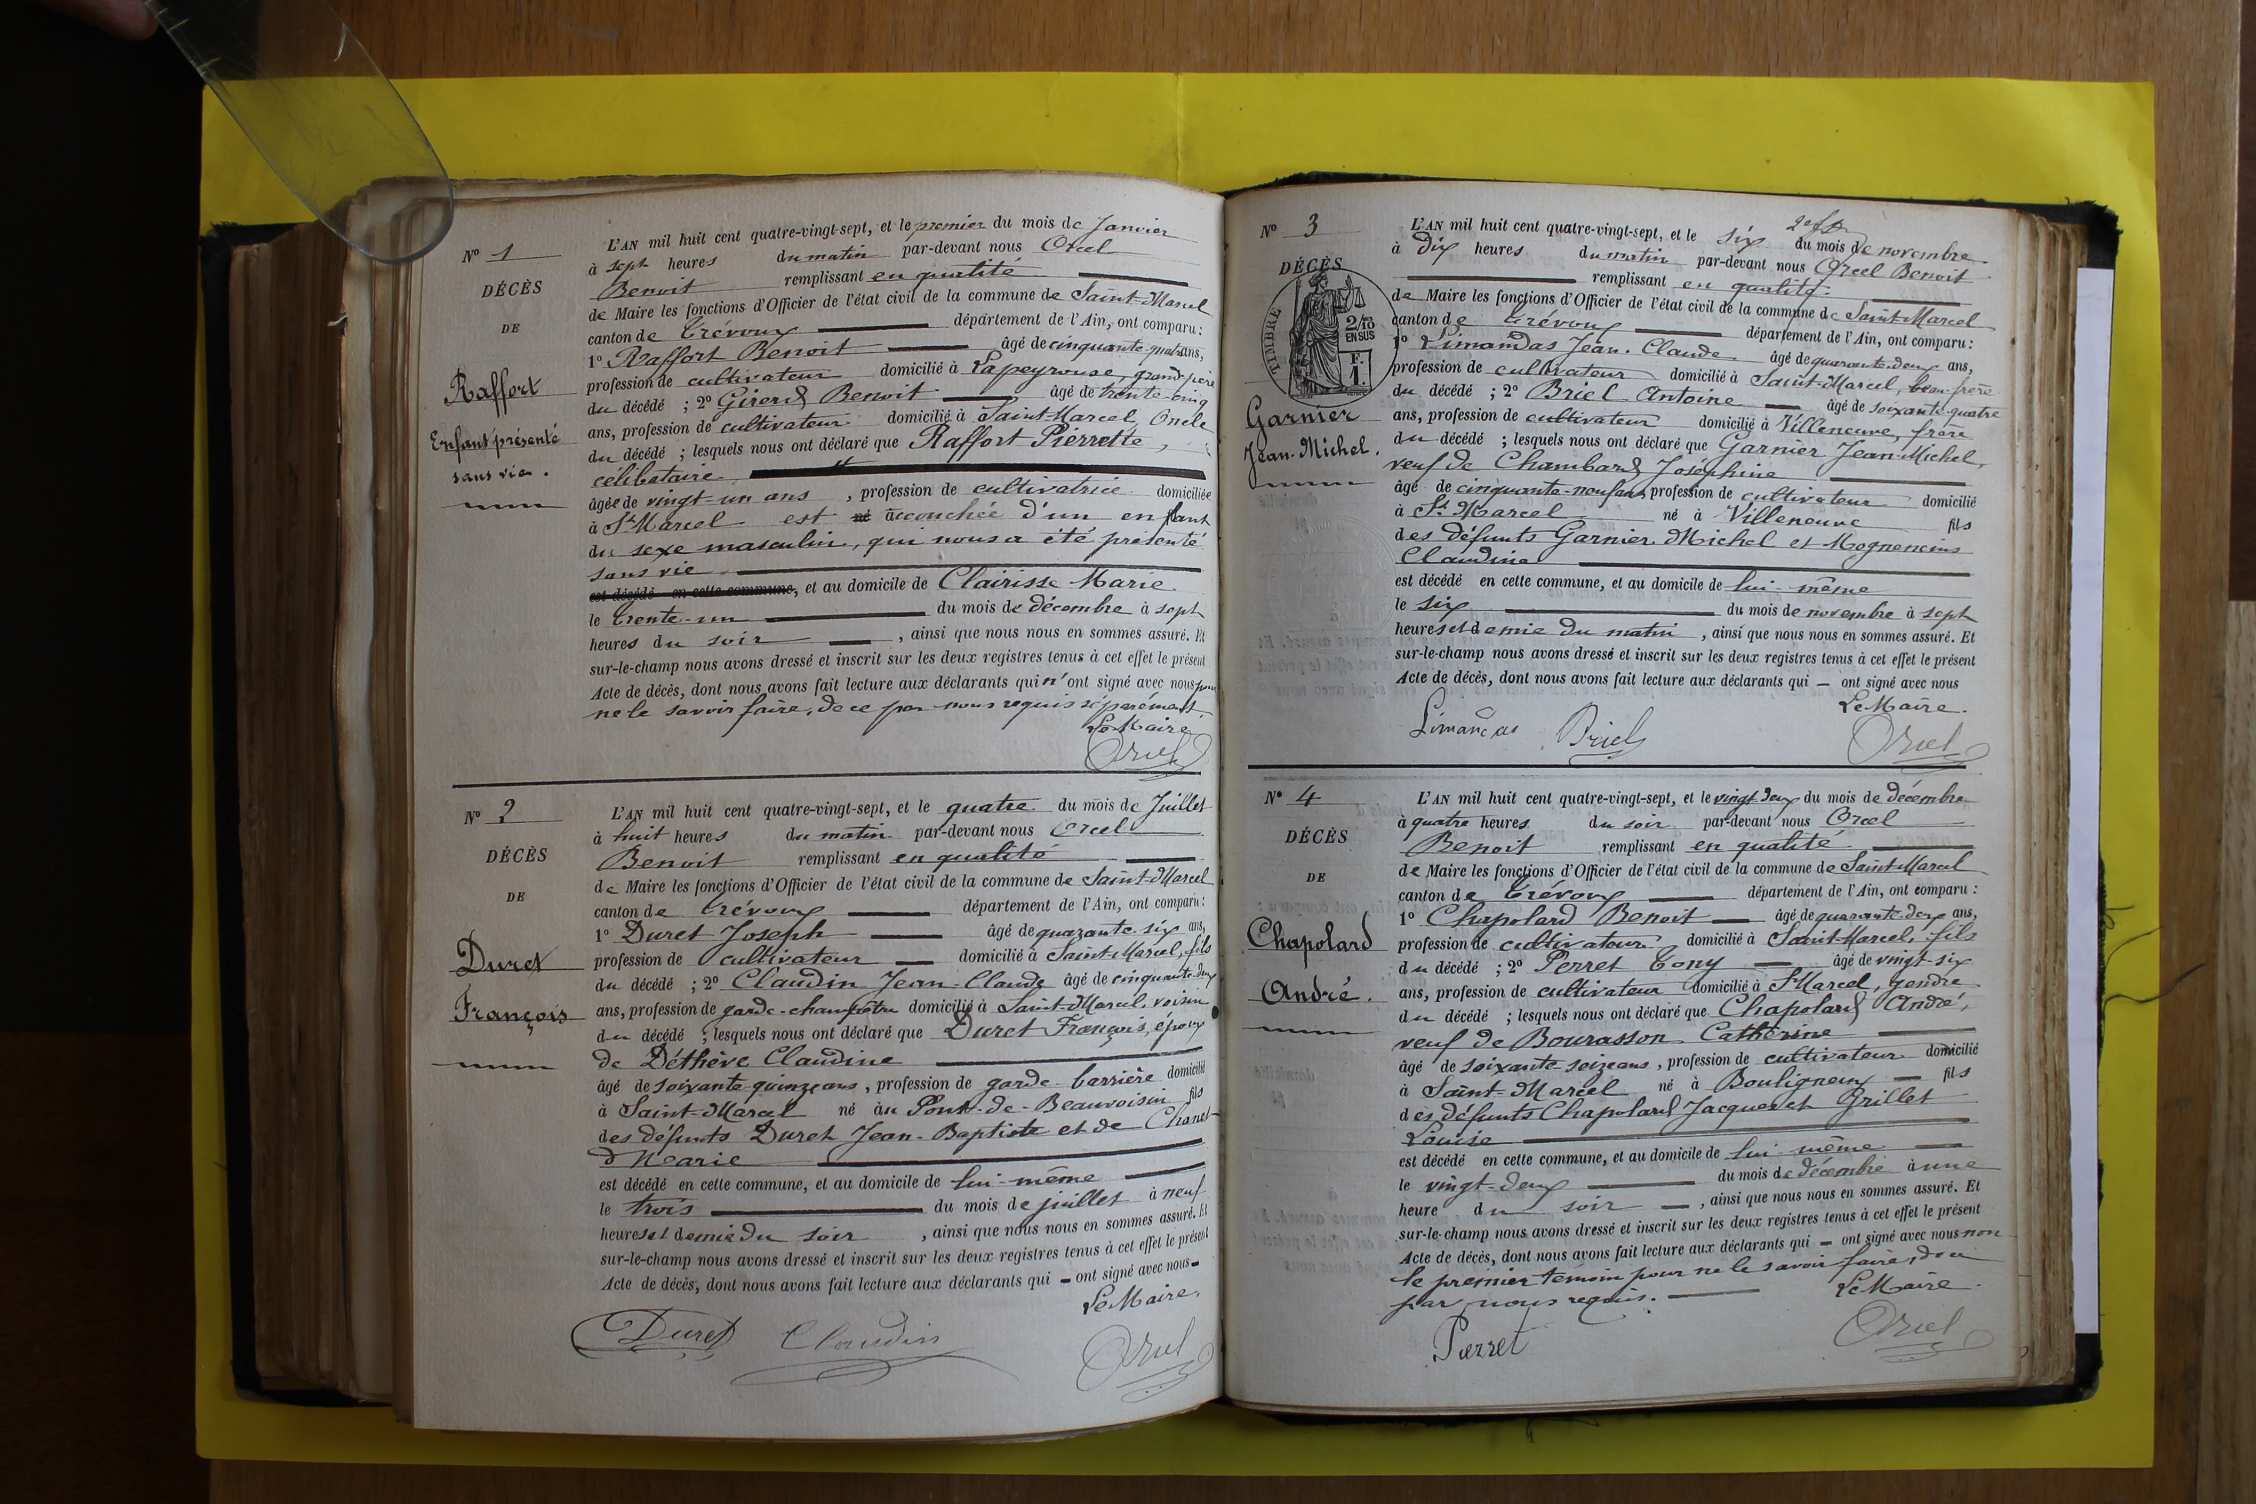 N° 1
DÉCÈS
DE
Raffort
Enfant présenté
sans vie.
L'AN mil huit cent quatre-vingt-sept, et le premier du mois de Janvier
à sept heures du matin par-devant nous Orcel
Benoit remplissant en qualité
de Maire les fonctions d'Officier de l'état civil de la commune de Saint-Marcel
canton de Trévoux département de l'Ain, ont comparu :
1° Raffort Benoit âgé de cinquante-quatre ans,
profession de cultivateur domicilié à Lapeyrouse, grand-père
du décédé ; 2° Girerd Benoit âgé de trente-cinq
ans, profession de cultivateur domicilié à Saint-Marcel, Oncle
du décédé ; lesquels nous ont déclaré que Raffort Pierrette,
célibataire
âgée de vingt-un ans , profession de cultivatrice domiciliée
à St Marcel est né accouchée d'un enfant
du sexe masculin, qui nous a été présenté
sans vie
est décédé en cette commune, et au domicile de Clairisse Marie
le trente-un du mois de décembre à sept
heures du soir , ainsi que nous nous en sommes assuré. Et
sur-le-champ nous avons dressé et inscrit sur les deux registres tenus à cet effet le présent
Acte de décès, dont nous avons fait lecture aux déclarants qui n'ont signé avec nous pour
ne le savoir faire, de ce par nous requis séparément.
Le Maire
Orcel
N° 2
DÉCÈS
DE
Duret
François
L'AN mil huit cent quatre-vingt-sept, et le quatre du mois de Juillet
à huit heures du matin par-devant nous Orcel
Benoit remplissant en qualité
de Maire les fonctions d'Officier de l'état civil de la commune de Saint-Marcel
canton de Trévoux département de l'Ain, ont comparu :
1° Duret Joseph âgé de quarante-six ans,
profession de cultivateur domicilié à Saint-Marcel, fils
du décédé ; 2° Claudin Jean-Claude âgé de cinquante-deux
ans, profession de garde-champêtre domicilié à Saint-Marcel, voisin
du décédé ; lesquels nous ont déclaré que Duret François, époux
de Déthève Claudine
âgé de soixante-quinze ans , profession de garde-barrière domicilié
à Saint-Marcel né au Pont-de-Beauvoisin fils
des défunts Duret Jean-Baptiste et de Chanet
Marie
est décédé en cette commune, et au domicile de lui-même
le trois du mois de juillet à neuf
heures et demie du soir , ainsi que nous nous en sommes assuré. Et
sur-le-champ nous avons dressé et inscrit sur les deux registres tenus à cet effet le présent
Acte de décès, dont nous avons fait lecture aux déclarants qui ont signé avec nous
Le Maire,
Duret Claudin Orcel
N° 3
DÉCÈS
TIMBRE
2/10
EN SUS
F.
1.
Garnier
Jean-Michel.
L'AN mil huit cent quatre-vingt-sept, et le six du mois de novembre
à dix heures du matin par-devant nous Orcel Benoit
remplissant en qualité
de Maire les fonctions d'Officier de l'état civil de la commune de Saint-Marcel
canton de Trévoux département de l'Ain, ont comparu :
1° Limandas Jean-Claude âgé de quarante-deux ans,
profession de cultivateur domicilié à Saint-Marcel, beau-frère
du décédé ; 2° Briel Antoine âgé de soixante-quatre
ans, profession de cultivateur domicilié à Villeneuve, frère
du décédé ; lesquels nous ont déclaré que Garnier Jean-Michel,
veuf de Chambard Joséphine
âgé de cinquante-neuf ans, profession de cultivateur domicilié
à St Marcel né à Villeneuve fils
des défunts Garnier Michel et Mognencins
Claudine
est décédé en cette commune, et au domicile de lui-même
le six du mois de novembre à sept
heures et demie du matin , ainsi que nous nous en sommes assuré. Et
sur-le-champ nous avons dressé et inscrit sur les deux registres tenus à cet effet le présent
Acte de décès, dont nous avons fait lecture aux déclarants qui — ont signé avec nous
Le Maire.
Limandas Briel Orcel
N° 4
DÉCÈS
DE
Chapolard
André.
L'AN mil huit cent quatre-vingt-sept, et le vingt-deux du mois de décembre
à quatre heures du soir par-devant nous Orcel
Benoit remplissant en qualité
de Maire les fonctions d'Officier de l'état civil de la commune de Saint-Marcel
canton de Trévoux département de l'Ain, ont comparu :
1° Chapolard Benoit âgé de quarante-deux ans,
profession de cultivateur domicilié à Saint-Marcel, fils
du décédé ; 2° Perret Tony âgé de vingt-six
ans, profession de cultivateur domicilié à St Marcel, gendre
du décédé ; lesquels nous ont déclaré que Chapolard André,
veuf de Bourasson Catherine
âgé de soixante-seize ans , profession de cultivateur domicilié
à Saint-Marcel né à Bouligneux fils
des défunts Chapolard Jacques et Grillet
Louise
est décédé en cette commune, et au domicile de lui-même
le vingt-deux du mois de décembre à une
heure du soir , ainsi que nous nous en sommes assuré. Et
sur-le-champ nous avons dressé et inscrit sur les deux registres tenus à cet effet le présent
Acte de décès, dont nous avons fait lecture aux déclarants qui — ont signé avec nous non
le premier témoin pour ne le savoir faire, de ce
par nous requis.
Le Maire.
Perret Orcel